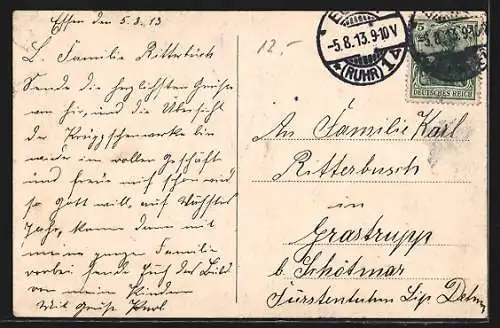 Essen den 5.8.13
L. Familie Ritterbusch
Sende die herzlichsten Grüße
von hier, und die Übersicht
der Kruppschenwerke bin
wieder im vollen Geschäft
und freue mich schon wied
so Gott will, auf Nächstes
Jahr, komme dann mit
meine ganze Familie
vorbei sende Euch das Bild
von mein Kindern
Mit Gruß Karl
12,-
5.8.13.9-10V
(RUHR) 14
DEUTSCHES REICH
An Familie Karl
Ritterbusch
in
Grastrupp
b. Schötmar
Fürstentum Lip. Detm.